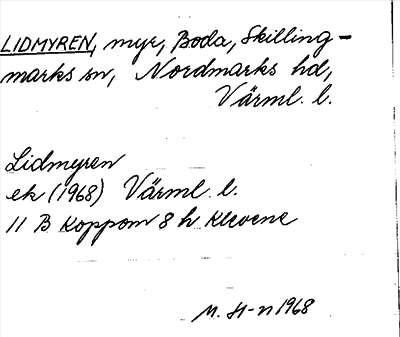 LIDMYREN, myr, Boda, Skilling-
marks sn, Nordmarks hd,
Värml. l.
Lidmyren
ek (1968) Värml. l.
11 B Koppom 8 h Klevene
M. H-n 1968